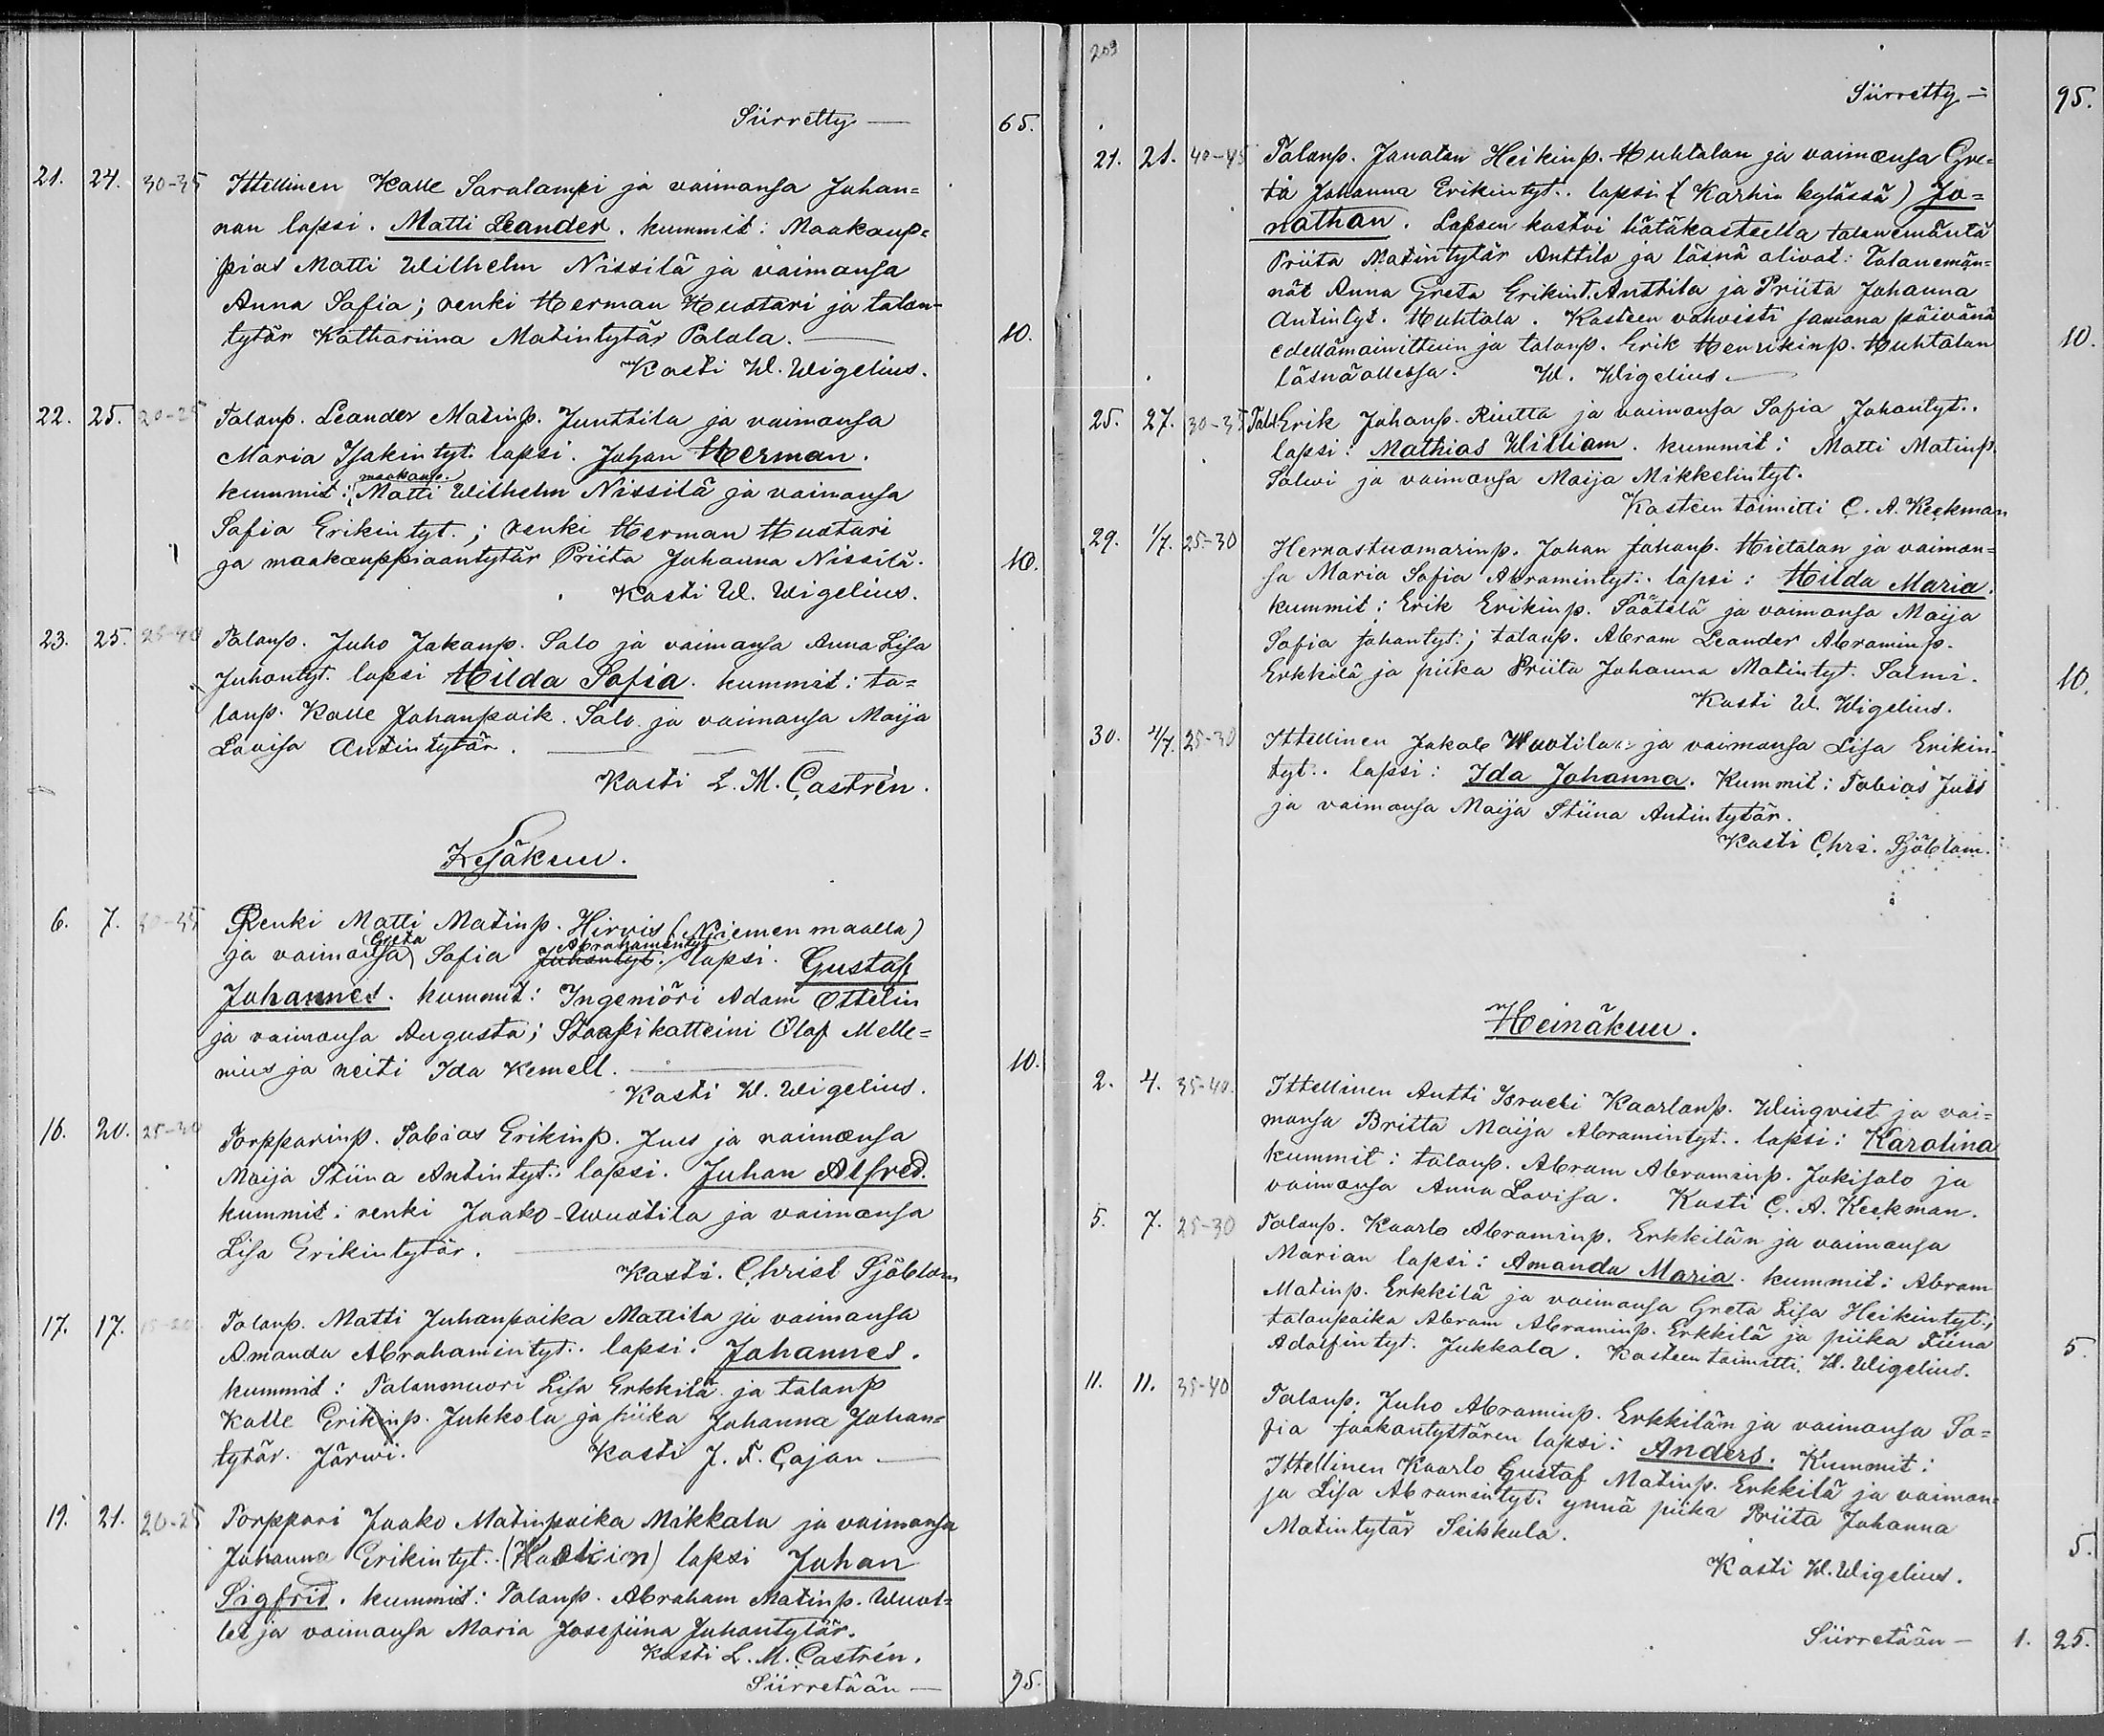 Siirretty — 65.
21. 24. 30-35 Ittellinen Kalle Saralampi ja vaimonsa Johan=
nan lapsi. Matti Leander. kummit: Maakaup=
pias Matti Wilhelm Nissilä ja vaimonsa
Anna Sofia; renki Herman Huotari ja talon-
tytär Kathariina Matintytär Palola. — 10.
Kasti W. Wigelius.
22. 25. 20-25 Talonp. Leander Matinp. Junttila ja vaimonsa
Maria Isakintyt. lapsi. Johan Herman.
maakaup.
kummit: Matti Wilhelm Nissilä ja vaimonsa
Sofia Erikintyt.; renki Herman Huotari
ja maakauppiaantytär Priita Johanna Nissilä. 10.
Kasti W. Wigelius.
23. 25. 25-40 Talonp. Juho Jakonp. Salo ja vaimonsa Anna Lisa
Juhontyt. lapsi Hilda Sofia. kummit: ta=
lonp. Kalle Johanpoik. Salo ja vaimonsa Maija
Lovisa Antintytär.
Kasti L. M. Castrén.
Kesäkuu.
6. 7. 30-35 Renki Matti Matinp. Hirvis (Niemen maalla)
Greta Abrahamintyt
ja vaimonsa Sofia Juhontyt. lapsi. Gustaf
Johannes. kummit: Ingeniöri Adam Ottelin
ja vaimonsa Augusta; Staapikatteini Olof Melle=
nius ja neiti Ida Kemell. — 10.
Kasti W. Wigelius.
16. 20. 25-30 Torpparinp. Tobias Erikinp. Juus ja vaimonsa
Maija Stiina Antintyt. lapsi. Juhan Alfred.
kummit: renki Jaako Wuotila ja vaimonsa
Lisa Erikintytär.
Kasti. Christ Sjöblom
17. 17. 15-20 Talonp. Matti Juhanpoika Mattila ja vaimonsa
Amanda Abrahamintyt. lapsi: Johannes.
kummit: Talonmuori Lisa Erkkilä ja talonp
Kalle Erikinp. Jukkola ja piika Johanna Johan=
tytär Järwi. Kasti J. F. Cajan —
19. 21. 20-25 Torppari Jaako Matinpoika Mikkala ja vaimonsa
Johanna Erikintyt. lapsi Juhan
Sigfrid. kummit: Talonp. Abraham Matinp. Wuot=
ila ja vaimonsa Maria Josefiina Juhontytär.
Kasti L. M. Castrén.
Siirretään — 95.
209
Siirretty — 95.
21. 21. 40-45 Talonp. Jonatan Heikinp. Huhtalan ja vaimonsa Gre=
ta Johanna Erikintyt. lapsi (Karhin kylässä) Jo=
nathan. Lapsen kastoi hätäkasteella talonemäntä
Priita Matintytär Anttila ja läsnä olivat: Talonemän=
nät Anna Greta Erikint. Anttila ja Priita Johanna
Antintyt. Huhtala. Kasteen vahvisti samana päivänä
edellämainittuin ja talonp. Erik Henrikinp. Huhtalan 10.
läsnäollessa. W. Wigelius —
25. 27. 30-35 Tal. Erik Johanp. Riutta ja vaimonsa Sofia Johantyt.
lapsi: Mathias William. kummit: Matti Matinp.
Salwi ja vaimonsa Maija Mikkelintyt.
Kasteen toimitti C. A. Keckman
29. 1/7. 25-30 Herrastuomarinp. Johan Johanp. Hietalan ja vaimon=
sa Maria Sofia Abramintyt. lapsi: Hilda Maria.
kummit: Erik Erikinp. Säätelä ja vaimonsa Maija
Sofia Johantyt.; talonp. Abram Leander Abraminp.
Erkkilä ja piika Priita Johanna Matintyt. Salmi. 10.
Kasti W. Wigelius.
30. 4/7. 25-30 Ittellinen Jakob Wuotilan ja vaimonsa Lisa Erikin-
tyt. lapsi: Ida Johanna. Kummit: Tobias Juus
ja vaimonsa Maija Stiina Antintytär.
Kasti Chri. Sjöblom.
Heinäkuu.
2. 4. 35-40. Ittellinen Antti Israeli Kaarlonp. Winqvist ja vai=
monsa Britta Maija Abramintyt. lapsi: Karolina
kummit: talonp. Abram Abraminp. Jokisalo ja
vaimonsa Anna Lovisa. Kasti C. A. Keckman.
5. 7. 25-30 Talonp. Kaarlo Abraminp. Erkkilän ja vaimonsa
Marian lapsi: Amanda Maria. kummit: Abram
Matinp. Erkkilä ja vaimonsa Greta Lisa Heikintyt.,
talonpoika Abram Abraminp. Erkkilä ja piika Tiina
Adolfintyt. Jukkola. Kasteen toimitti W. Wigelius. 5.
11. 11. 35-40 Talonp. Juho Abraminp. Erkkilän ja vaimonsa So=
fia Jaakontyttären lapsi: Anders. Kummit:
Ittellinen Kaarlo Gustaf Matinp. Erkkilä ja vaimon=
sa Lisa Abramintyt. ynnä piika Priita Johanna
Matintytär Seikkula. 5.
Kasti W. Wigelius.
Siirretään — 1. 25.